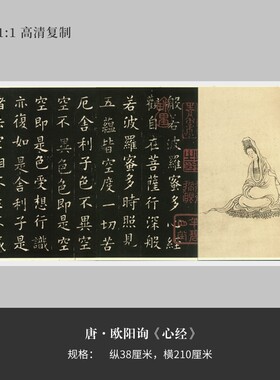 1:1 高清复制
般若波羅蜜多心經
觀自在菩薩行深般
若波羅蜜多時照見
五蘊皆空度一切苦
厄舍利子色不異空
空不異色色即是空
空即是色受想行識
亦復如是舍利子是
唐·欧阳询《心经》
规格： 纵38厘米，横210厘米